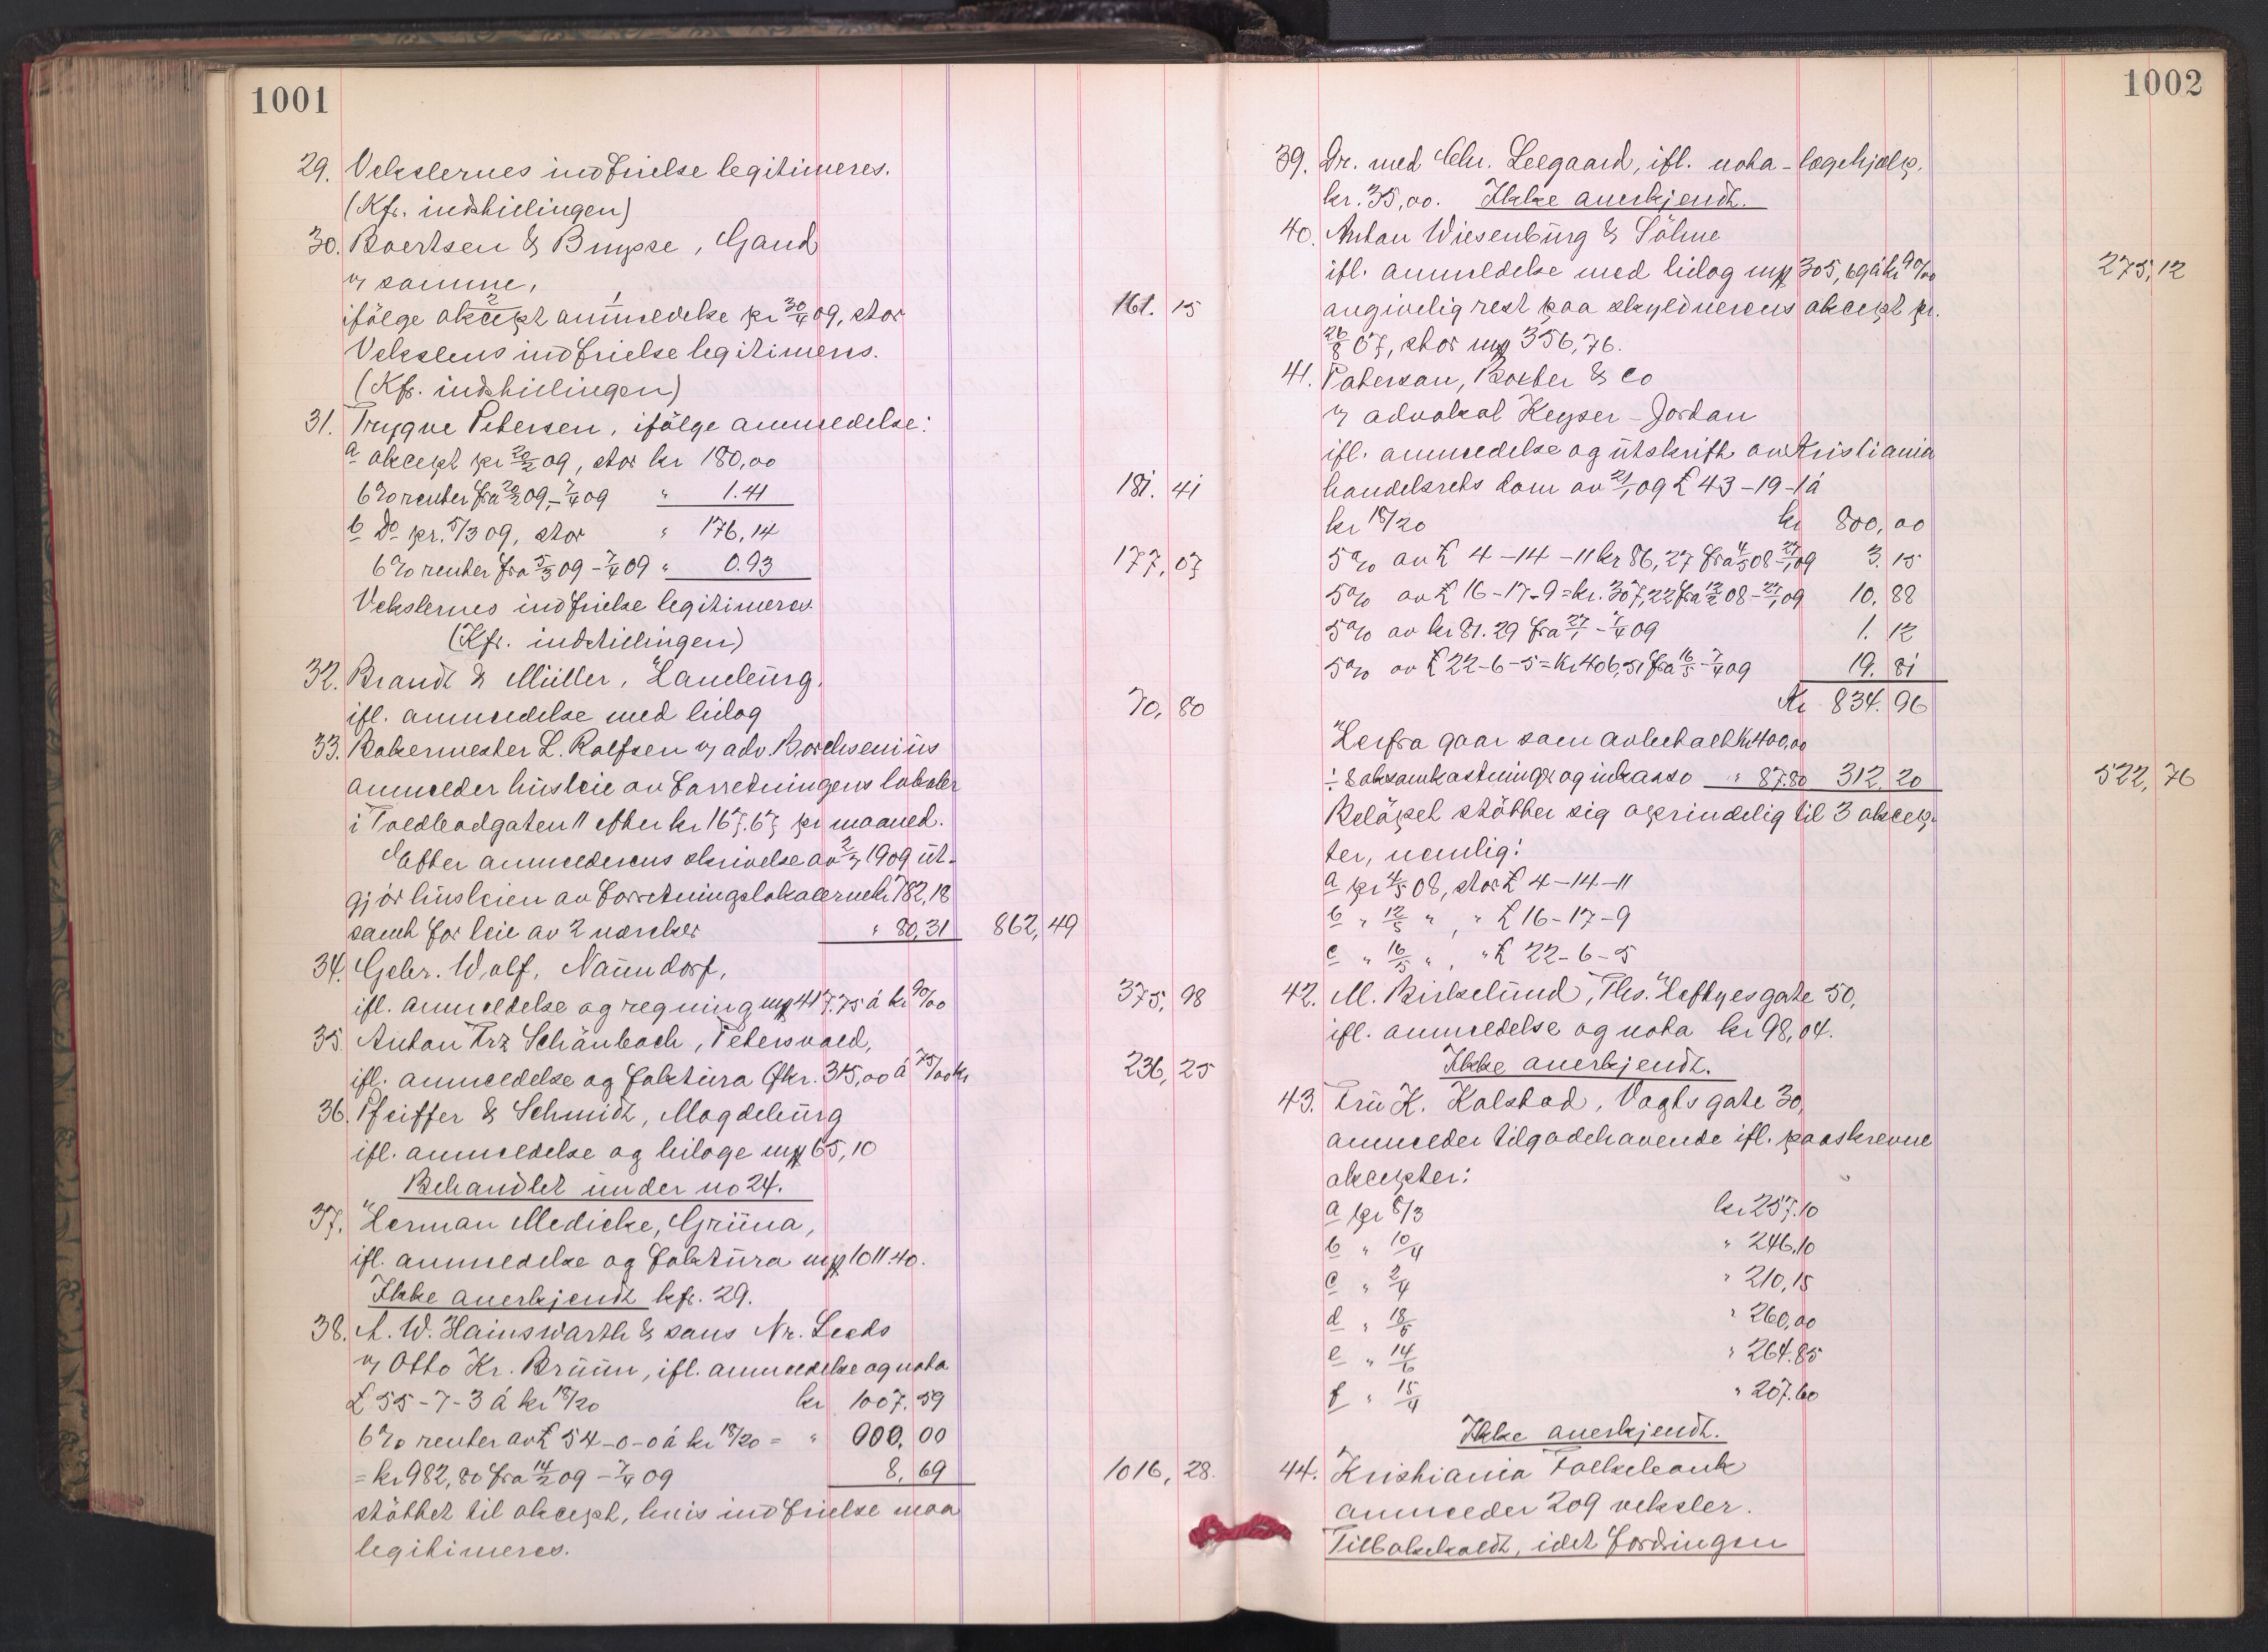 1001
29. Vekslernes indfrielse legitimeres.
(Kfr. indstillingen)
30. Baertsen & Buysse, Gand
v/ samme,
ifölge akcept anmeldelse pr 30/4 09, stor 161. 15
Vekslens indfrielse legitimeres.
(Kfr. indstillingen)
31. Trygve Petersen, ifölge anmeldelse:
a akcept pr 20/2 09, stor kr 180,00
6% renter fra 20/2 09, - 7/4 09 " 1.41 181. 41
b Do pr. 5/3 09, stor " 176,14
6% renter fra 5/3 09 - 7/4 09 " 0.93 177, 07
Vekslernes indfrielse legitimeres.
(Kfr. indstillingen)
32. Brandt & Müller, Hamburg.
ifl. anmeldelse med bilag 70, 80
33. Bakermester L. Rolfsen v/ adv. Borchsenius
anmelder husleie av Forretningens lokaler
i Toldbodgaten 11 efter kr 167.67 pr maaned.
Efter anmelderens skrivelse av 2/7 1909 ut-
gjör husleien av Forretningslokalerne kr 782,18
samt for leie av 2 værelser " 80,31 862, 49
34. Gebr. Wolf, Naundorf,
ifl. anmeldelse og regning mk 417.75 á kr 90/00 375, 98
35. Anton Frz Schänbach, Peterswald,
ifl. anmeldelse og faktura Økr. 315,00 á 75/00 kr 236, 25
36. Pfeiffer & Schmidt, Magdeburg
ifl. anmeldelse og bilage mk 65,10
Behandlet under no 24.
37. Herman Medicke, Grüna,
ifl. anmeldelse og faktura mk 1011.40.
Ikke anerkjendt kfr. 29.
38. A. W. Hainswarth & sons Nr. Leeds
v/ Otto Kr. Bruun, ifl. anmeldelse og nota
£ 55 - 7 - 3 á kr 18/20 kr 1007. 59
6% renter av £ 54 - 0 - 0 á kr 18/20 = " 000, 00
= kr 982,80 fra 14/2 09 - 7/4 09 8, 69 1016, 28.
stöttet til akcept, hvis indfrielse maa
legitimeres.
1002
39. Dr. med Chr. Leegaard, ifl. nota - lægehjælp.
kr. 35,00. Ikke anerkjendt.
40. Anton Wiesenburg & Söhne
ifl. anmeldelse med bilag mk 305,69 á kr 90/00 275, 12
angivelig rest paa skyldnerens akcept pr.
26/8 07, stor mk 356,76.
41. Paterson, Boster & Co
v/ advokat Keyser - Jordan
ifl. anmeldelse og utskrift av Kristiania
handelsrets dom av 21/1 09 £ 43 - 19 - 1 á
kr 18/20 kr 800, 00
5% av £ 4 - 14 - 11 kr 86,27 fra 4/5 08 - 27/1 09 3. 15
5% av £ 16 - 17 - 9 = kr. 307,22 fra 12/2 08 - 27/1 09 10, 88
5% av kr 81.29 fra 27/1 - 7/4 09 1. 12
5% av £ 22 - 6 - 5 = kr 406,51 fra 16/5 - 7/4 09 19. 81
Kr 834. 96
Herfra gaar som avbetalt kr 400,00
÷ saksomkastninger og inkasso " 87.80 312, 20 522, 76
Beløpet støtter sig oprindelig til 3 akcep-
ter, nemlig:
a pr 4/5 08, stor £ 4 - 14 - 11
b " 12/5 " , " £ 16 - 17 - 9
c " 16/5 " , " £ 22 - 6 - 5
42. M. Birkelund, Ths. Heftyesgate 50,
ifl. anmeldelse og nota kr 98,04.
Ikke anerkjendt.
43. Fru K. Kolstad, Vogtsgate 30,
anmelder tilgodehavende ifl. paaskrevne
akcepter:
a pr 8/3 kr 257.10
b " 10/4 " 246,10
c " 2/4 " 210,15
d " 18/5 " 260,00
e " 14/6 " 264.85
f " 15/4 " 207.60
Ikke anerkjendt.
44. Kristiania Folkebank
anmelder 209 veksler.
Tilbakekaldt, idet fordringen